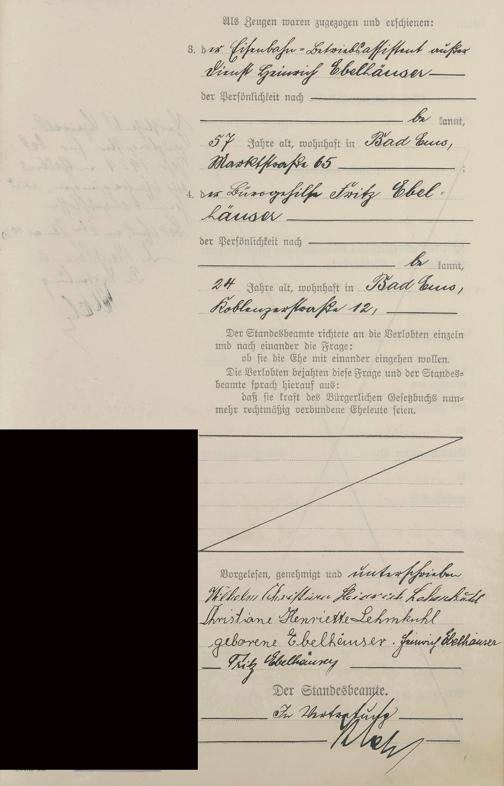 Als Zeugen waren zugezogen und erschienen:
3. der Eisenbahn-Betriebsassistent außer
Dienst Heinrich Ebelhäuser
der Persönlichkeit nach
be kannt,
57 Jahre alt, wohnhaft in Bad Ems,
Marktstraße 65
4. der Bürogehilfe Fritz Ebel-
häuser
der Persönlichkeit nach
be kannt,
24 Jahre alt, wohnhaft in Bad Ems,
Koblenzerstraße 12,
Der Standesbeamte richtete an die Verlobten einzeln
und nach einander die Frage:
ob sie die Ehe mit einander eingehen wollen.
Die Verlobten bejahten diese Frage und der Standes-
beamte sprach hierauf aus:
daß sie kraft des Bürgerlichen Gesetzbuchs nun-
mehr rechtmäßig verbundene Eheleute seien.
Vorgelesen, genehmigt und unterschrieben
Wilhelm Christian Heinrich
Christiane Henriette Lehmkuhl
geborene Ebelhäuser. Heinrich Ebelhäuser
Fritz Ebelhäuser
Der Standesbeamte.
In Vertretung